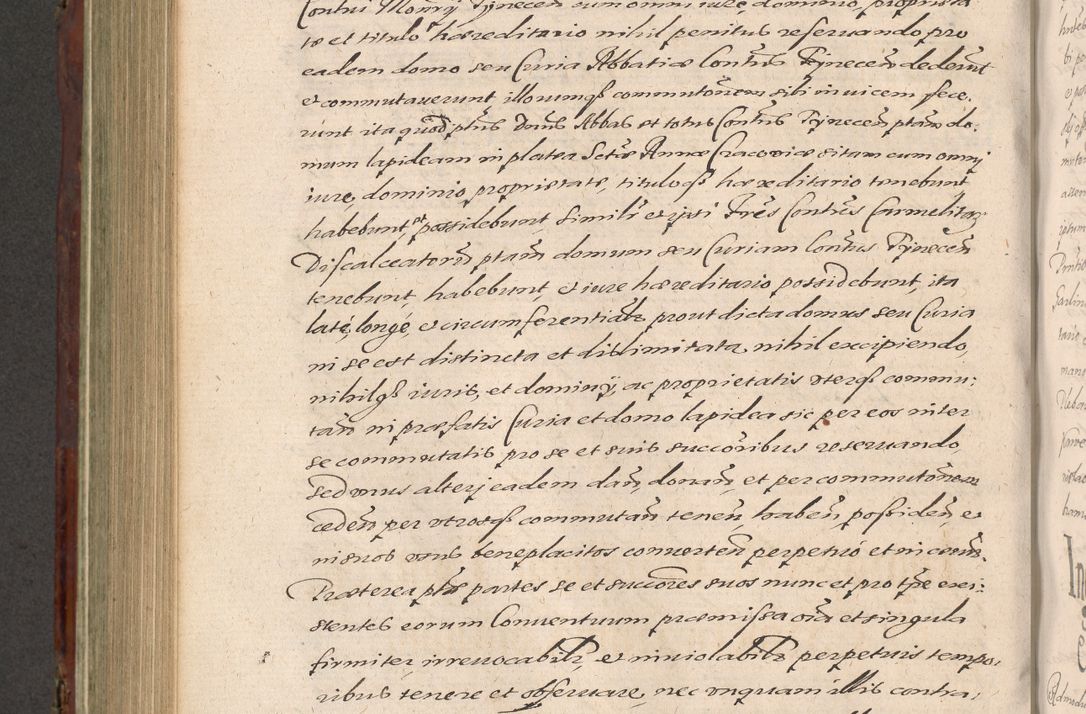 Contui Monrij Tynecen cum omni iure, dominio, proprieta
te et titulo hæreditario nihil penitus reseruando pro
eadem domo seu Curia Abbatiæ Contus Tynecen dederunt
et commutauerunt illorumq commutonem sibi inuicem fece,
runt ita quod ptus Dnus Abbas et totus Contus Tynecen ptam do,
mum lapideam in platea Sctæ Annæ Cracouiæ sitam cum omnj
iure, dominio, proprietate, tituloq hæreditario tenebunt
habebunt, et possidebunt, Similr et ipsi Frēs Contus Carmelitar
Discalceatorū ptam domum seu Curiam Contus Tynecen
tenebunt, habebunt, et iure hæreditario possidebunt, ita
latè, longè, et circumferentialr prout dicta domus seu Curia
in se est distincta et dislimitata, nihil excipiendo,
nihilq iuris, et dominij, ac proprietatis vterq commu,
tan in præfatis Curia et domo lapidea sic per eos inter
se commutatis pro se et suis succoribus reseruando,
sed vnus alterj eadem dan, donan, et per commutonem
ceden per vtrosq commutan tenen, haben, possiden, et
in suos vsus beneplacitos conuerten perpetuò et in æuum.
Præterea ptæ partes se et succores suos nunc et pro tpe exi,
stentes eorum Conuentuum præmissa oia et singula
firmiter, irreuocabilr, et inuiolabilr perpetuis tempo,
ribus tenere et obseruare, nec vnquam illis contra,